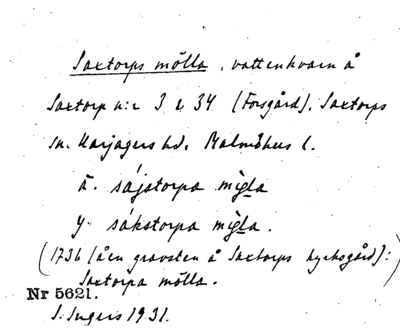 Saxtorps mölla, vattenkvarn å
Saxtorp n:r 3 & 34 (Forsgård). Saxtorps
sn. Harjagers hd. Malmöhus l.
ä. sájstorpa mìgla
y. sákstorpa mìgla.
(1736 (å en gravsten å Saxtorps kyrkogård):
Saxtorpa mölla.
Nr 5621.
S. Ingers 1931.